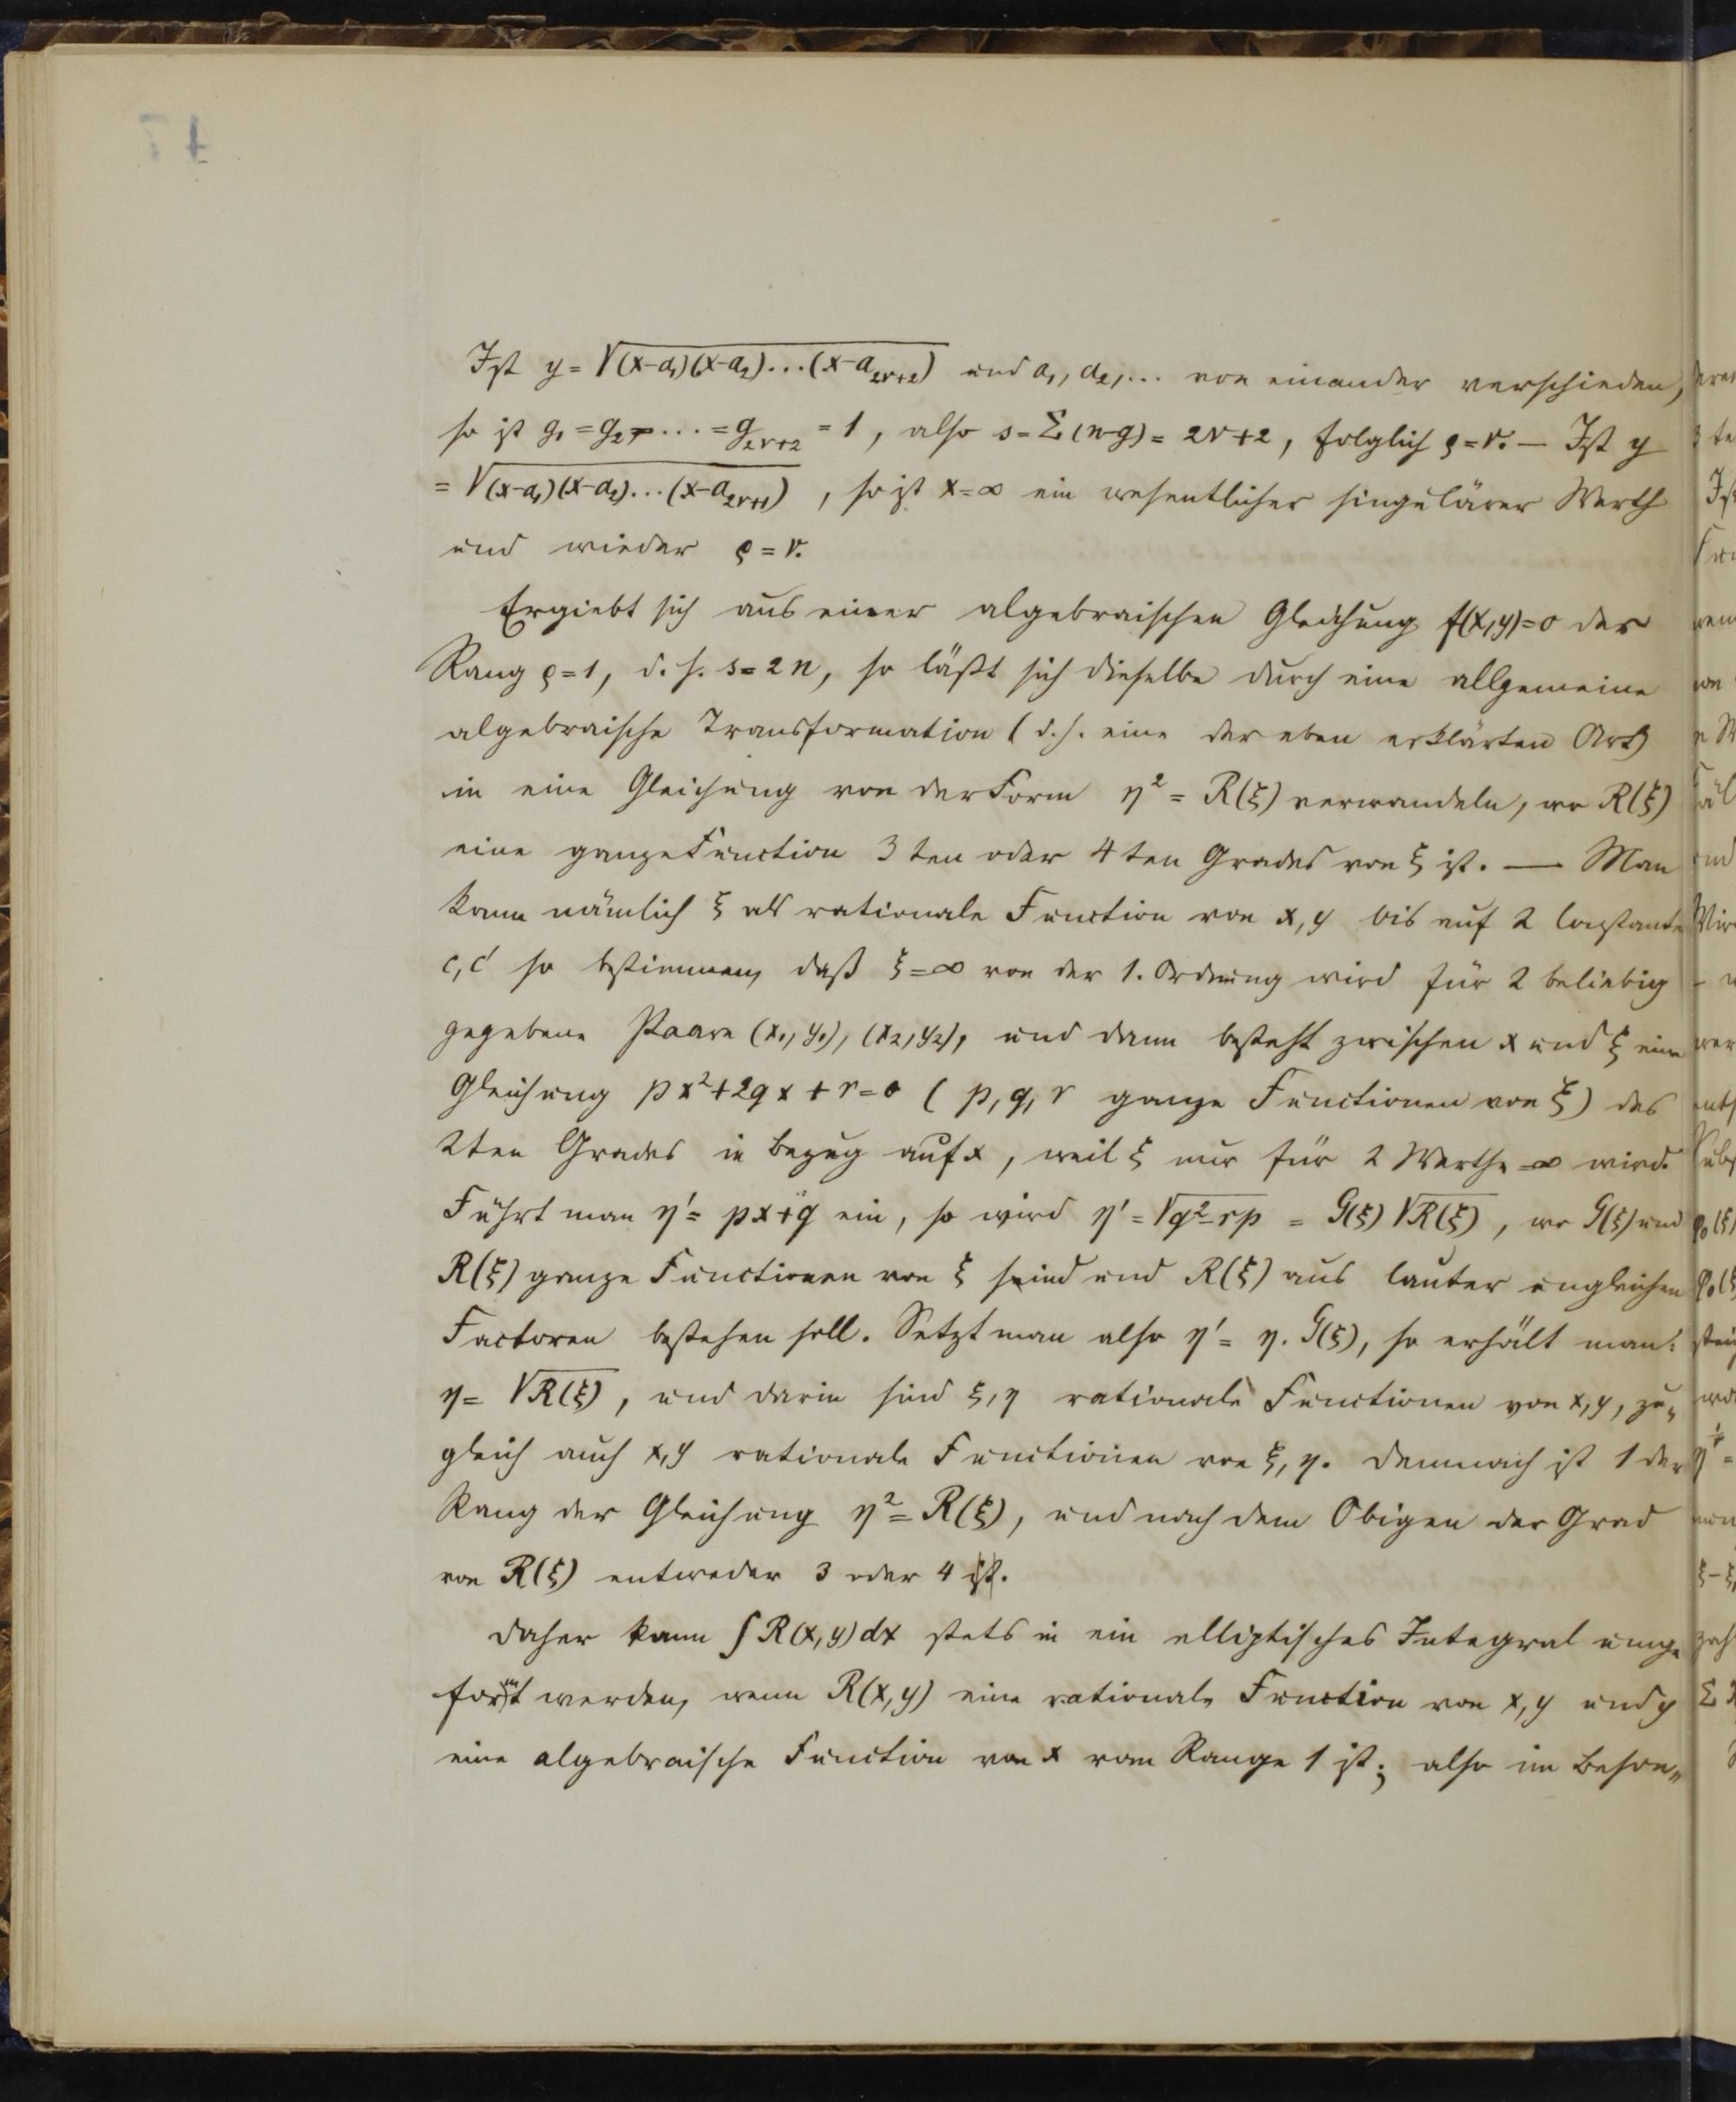 Ist y = √(x-a₁)(x-a₂)...(x-a₂ᵣ₊₂) und a₁, a₂,... von einander verschieden,
so ist g₁ = g₂ = ... = g₂ᵣ₊₂ = 1, also s = Σ(n-g) = 2r+2, folglich ρ = r. — Ist y
= √(x-a₁)(x-a₂)...(x-a₂ᵣ₊₁), so ist x = ∞ ein wesentlicher singulärer Werth
und wieder ρ = r.
Ergiebt sich aus einer algebraischen Gleichung f(x,y)=0 der
Rang ρ=1, d. h. s=2n, so läßt sich dieselbe durch eine allgemeine
algebraische Transformation (d. h. eine der eben erklärten Art)
in eine Gleichung von der Form η² = R(ξ) verwandeln, wo R(ξ)
eine ganze Function 3ten oder 4ten Grades von ξ ist. — Man
kann nämlich ξ als rationale Function von x, y bis auf 2 Constante
c, c' so bestimmen, daß ξ=∞ von der 1. Ordnung wird für 2 beliebig
gegebene Paare (x₁, y₁), (x₂, y₂), und dann besteht zwischen x und ξ eine
Gleichung px²+2qx+r=0 (p, q, r ganze Functionen von ξ) des
2ten Grades in Bezug auf x, weil ξ nur für 2 Werthe =∞ wird.
Führt man η' = px+q ein, so wird η' = √q²-rp = G(ξ)√R(ξ), wo G(ξ) und
R(ξ) ganze Functionen von ξ sind und R(ξ) aus lauter ungleichen
Factoren bestehen soll. Setzt man also η' = η. G(ξ), so erhält man:
η = √R(ξ), und darin sind ξ, η rationale Functionen von x, y, zu-
gleich auch x, y rationale Functionen von ξ, η. Demnach ist 1 der
Rang der Gleichung η² = R(ξ), und nach dem Obigen der Grad
von R(ξ) entweder 3 oder 4 ist.
Daher kann ∫R(x,y)dx stets in ein elliptisches Integral umge-
formt werden, wenn R(x,y) eine rationale Function von x, y und y
eine algebraische Function von x vom Range 1 ist; also im Beson-